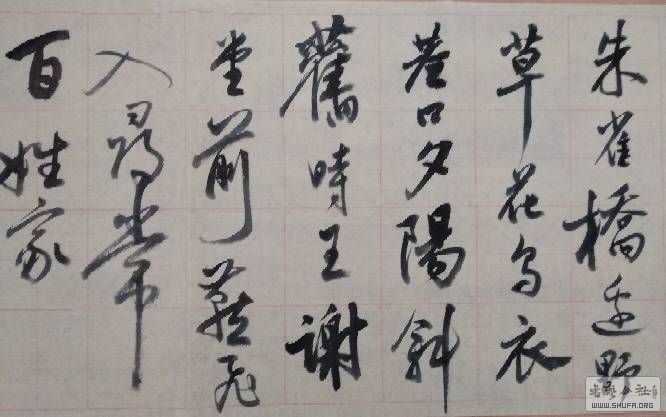 朱雀橋邊野
草花烏衣
巷口夕陽斜
舊時王謝
堂前燕飛
入尋常
百姓家
書法公社
WWW.SHUFA.ORG